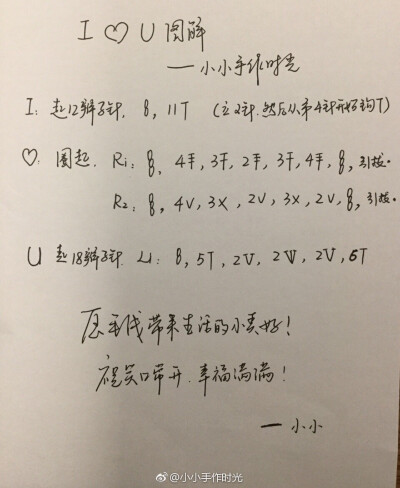 I ♡ U 图解
— 小小手作时光
I: 起12辫子针, 8, 11T (立2针.然后从第4针开始钩T)
♡: 圈起. R1: 8, 4丰, 3干, 2丰, 3干, 4丰, 8, 引拔.
R2: 8, 4V, 3X, 2V, 3X, 2V, 8, 引拔.
U 起18辫子针. 8, 5T, 2V, 2V, 2V, 5T
愿手线带来生活的小美好!
祝笑口常开.幸福满满!
— 小小
@小小手作时光